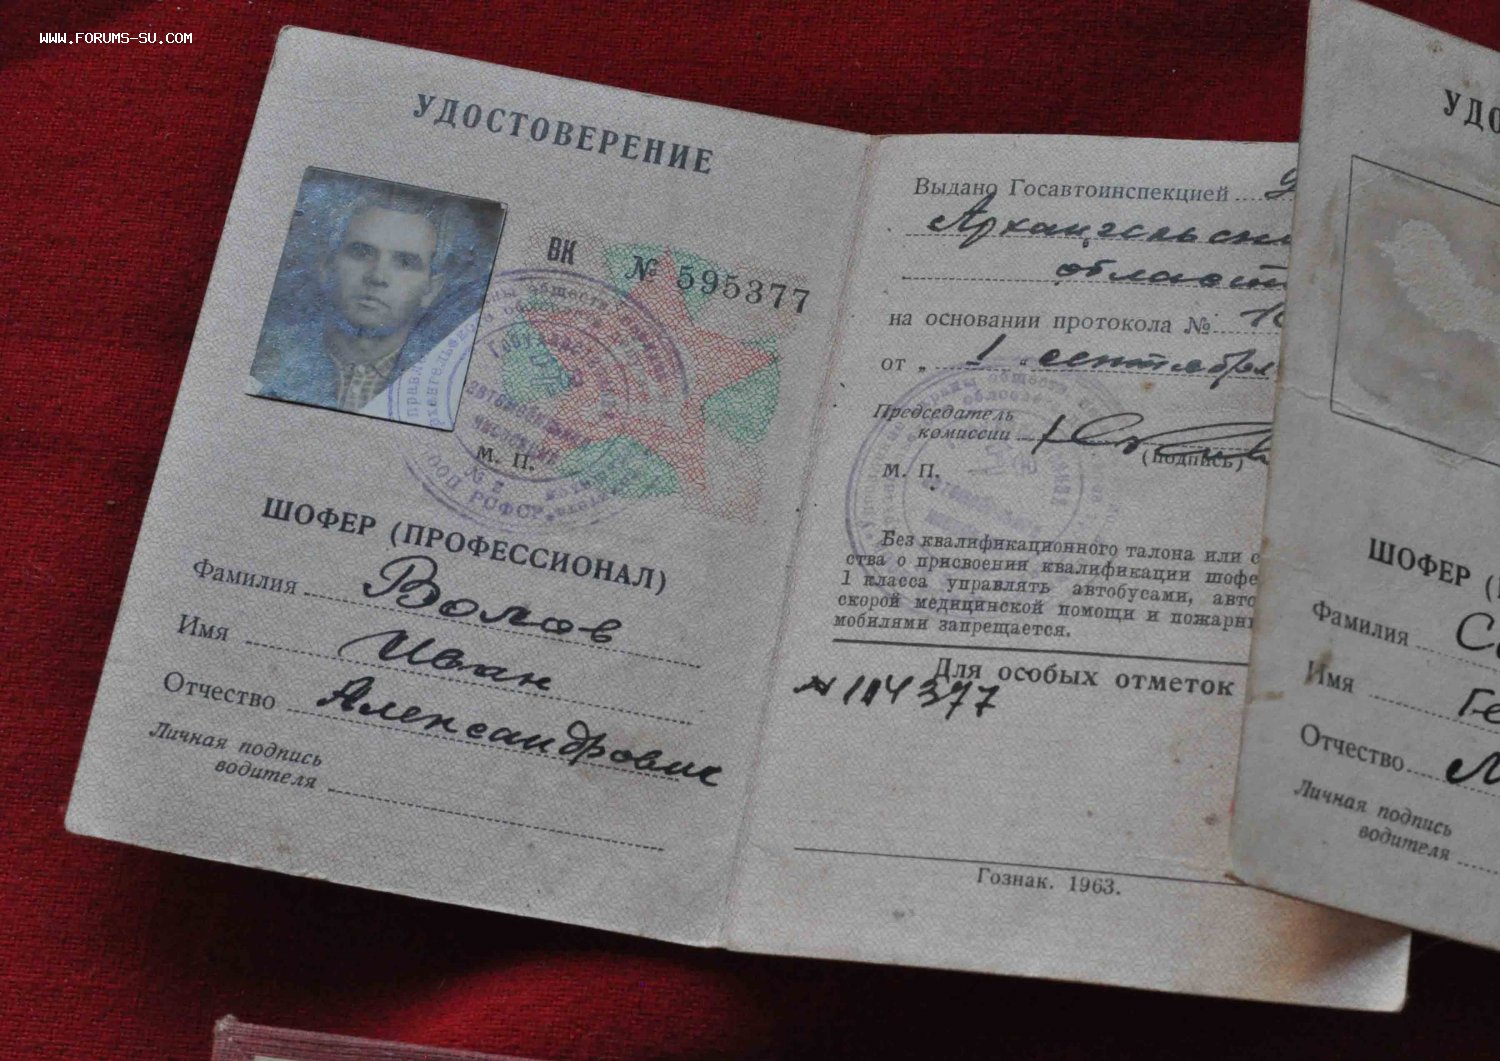 WWW.FORUMS-SU.COM
УДОСТОВЕРЕНИЕ
ВК № 595377
М. П.
№ 2
ООП РСФСР
ШОФЕР (ПРОФЕССИОНАЛ)
Фамилия Волов
Имя Иван
Отчество Александрович
Личная подпись
водителя
Выдано Госавтоинспекцией
Архангельской
област
на основании протокола №
от „ 1 " сентября
Председатель
комиссии
(подпись)
М. П.
Без квалификационного талона или с
ства о присвоении квалификации шофе
1 класса управлять автобусами, авто
скорой медицинской помощи и пожарны
мобилями запрещается.
Для особых отметок
№ 114377
Гознак. 1963.
УДО
ШОФЕР (
Фамилия
Имя Ге
Отчество
Личная подпись
водителя